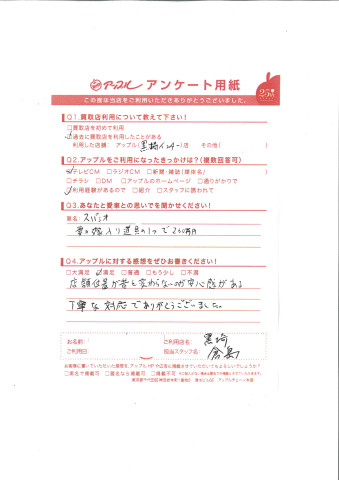 アップル アンケート用紙
25周年
この度は当店をご利用いただきありがとうございました。
Q1.買取店利用について教えて下さい!
□買取店を初めて利用
☑過去に買取店を利用したことがある
利用した店舗: アップル(黒埼インター)店 その他( )
Q2.アップルをご利用になったきっかけは?(複数回答可)
☑テレビCM □ラジオCM □新聞・雑誌(媒体名/ )
□チラシ □DM □アップルのホームページ □通りがかりで
☑利用経験があるので □紹介 □スタッフに誘われて
Q3.あなたと愛車との思いでを聞かせください!
車名:スバシオ
妻の嫁入り道具の1つで230万円
Q4.アップルに対する感想をぜひお書きください!
□大満足 ☑満足 □普通 □もう少し □不満
店頭位置が昔と変わらないのが安心感がある
丁寧な対応でありがとうございました。
お名前: ご利用店名: 黒埼
ご利用日: 担当スタッフ名:
お客様に書いていただいた感想を、アップルHPや広告に掲載させていただいてもよろしいでしょうか?
□実名で掲載可 □匿名なら掲載可 □掲載不可